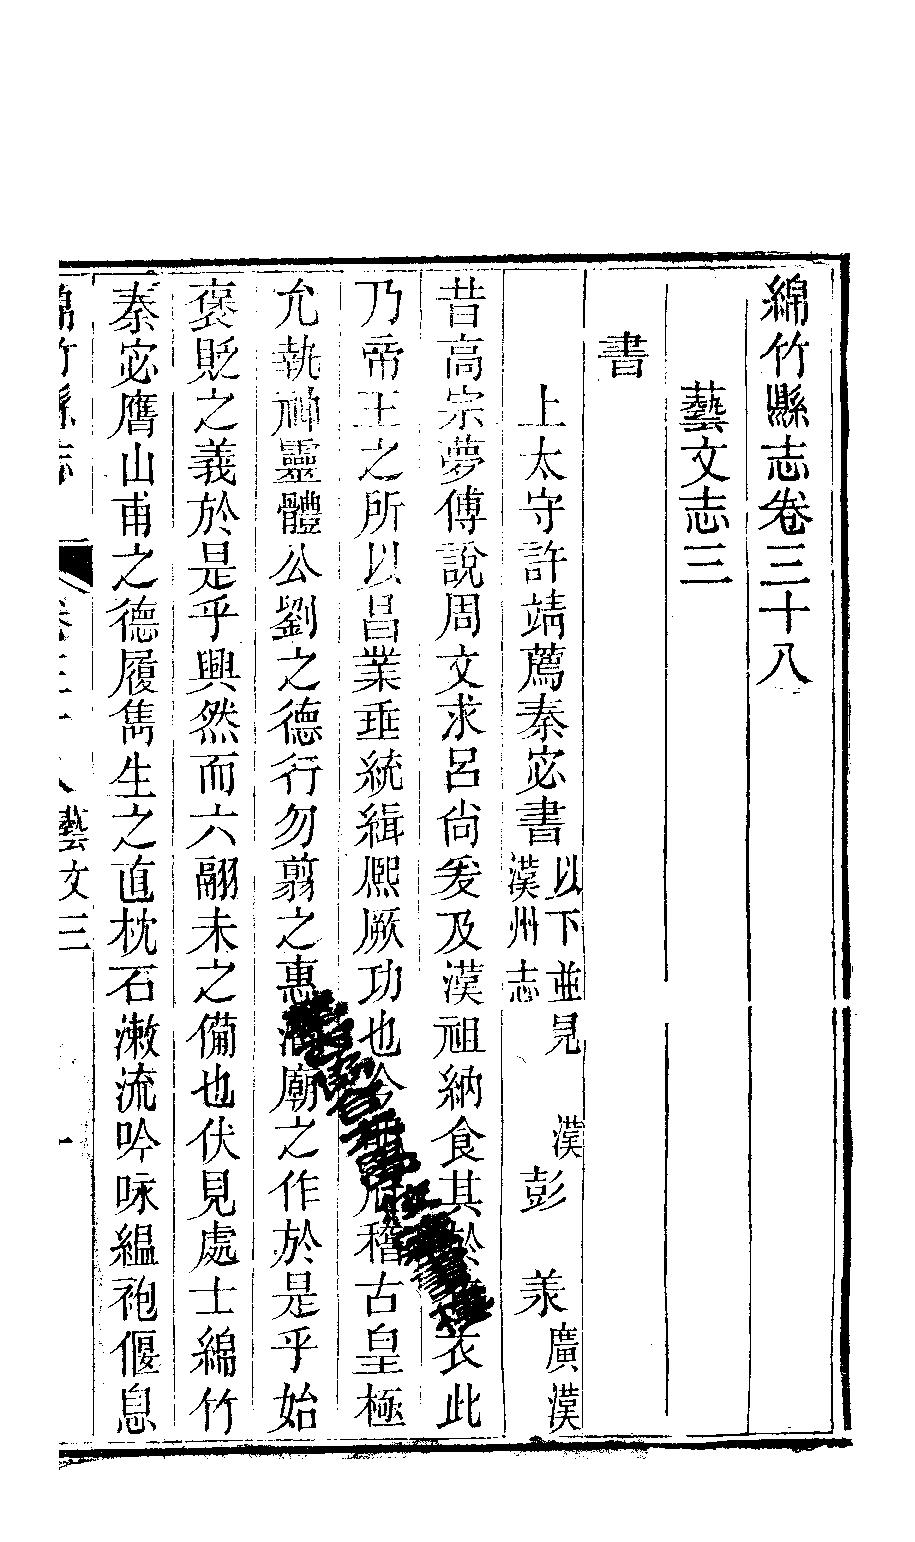 綿竹縣志卷三十八
藝文志三
書
上太守許靖薦秦宓書 以下並見漢州志 漢 彭羕 廣漢
昔高宗夢傅說周文求呂尚爰及漢祖納食其於衣此
乃帝王之所以昌業垂統緝熙厥功也今府稽古皇極
允執神靈體公劉之德行勿翦之惠清廟之作於是乎始
褒貶之義於是乎興然而六翮未之備也伏見處士綿竹
秦宓膺山甫之德履雋生之直枕石漱流吟咏縕袍偃息
綿竹縣志 卷三十八 藝文三 一